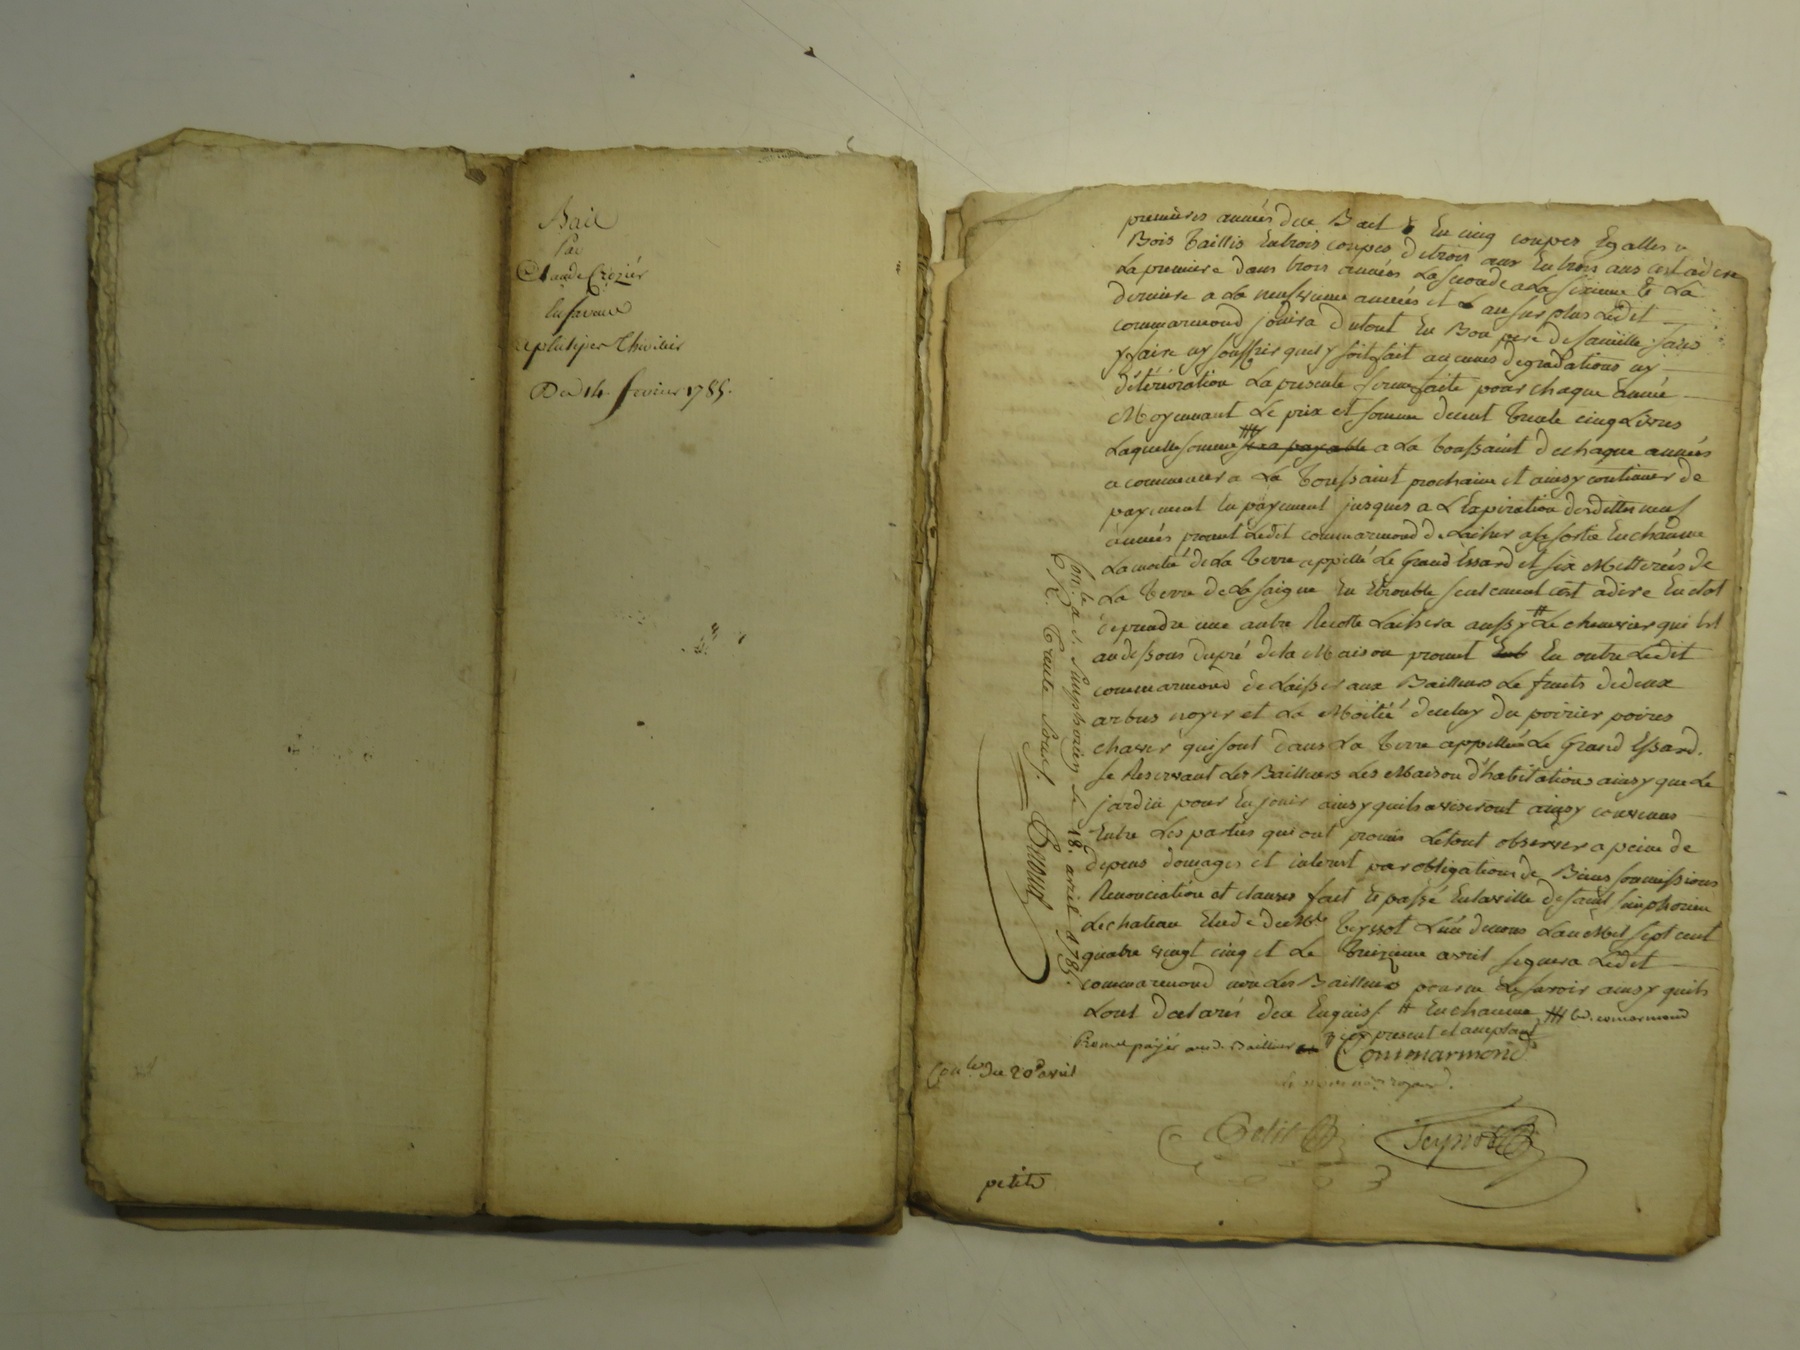 Bail
Par
Claude Crozier
En faveur
Du 14 fevrier 1785.
premieres années due Bail & En cinq coupes Egalles
Bois Taillis En trois coupes de trois ans En trois ans cest à dire
La premiere dans trois années La seconde a La sixieme & La
derniere a La neufvieme années et au surplus Ledit
commarmond jouira du tout En Bon pere de famille sans
y faire ny souffrir quil y soit fait aucunes degradations ny
détérioration La presente ferme faite pour chaque année
Moyennant Le prix et somme de cent trente cinq Livres
Laquelle somme sera payable a La toussaint de chaque années
a commencer a La Toussaint prochaine et ainsy continuer de
payement En payement jusques a L'Expiration desdittes neuf
années promet Ledit commarmond de Laisser a sa sortie En chaume
La moitié de La Terre appellé Le Grand Essard et six Metterées de
La Terre de La saigne En Etrouble seulement cest a dire En
de prendre une autre Recolte Laissera aussy Le chenevier qui Est
au dessous du pré de la Maison promet En outre Ledit
commarmond de Laisser aux Bailleurs Le fruits de deux
arbres noyer et La Moitié de celuy du poirier poires
qui sont dans La Terre appellée Le Grand Essard.
se Reservant Les Bailleurs Les Maison d'habitations ainsy que Le
jardin pour En jouir ainsy quils aviseront ainsy convenus
Entre Les parties qui ont promis Le tout observer a peine de
depens domages et interest par obligations de Biens soumissions
Renonciation et clauses fait & passé En la ville de saint simphorien
Le chateau Etude de Me Teyssot L'un de nous L'an Mil sept cent
quatre vingt cinq et Le Treizieme avril signera Ledit
commarmond non Les Bailleurs pour ne Le savoir ainsy quils
L'ont declarés de ce Enquis # En chaume ### Led. comarmond
Promet payer aux d. Bailleurs icy present et acceptant
Commarmond
Petit Teyssot
Con.lé a S. Simphorien le 18. avril 1785.
R. Trente sous.
Con.lé du 20e avril
petit